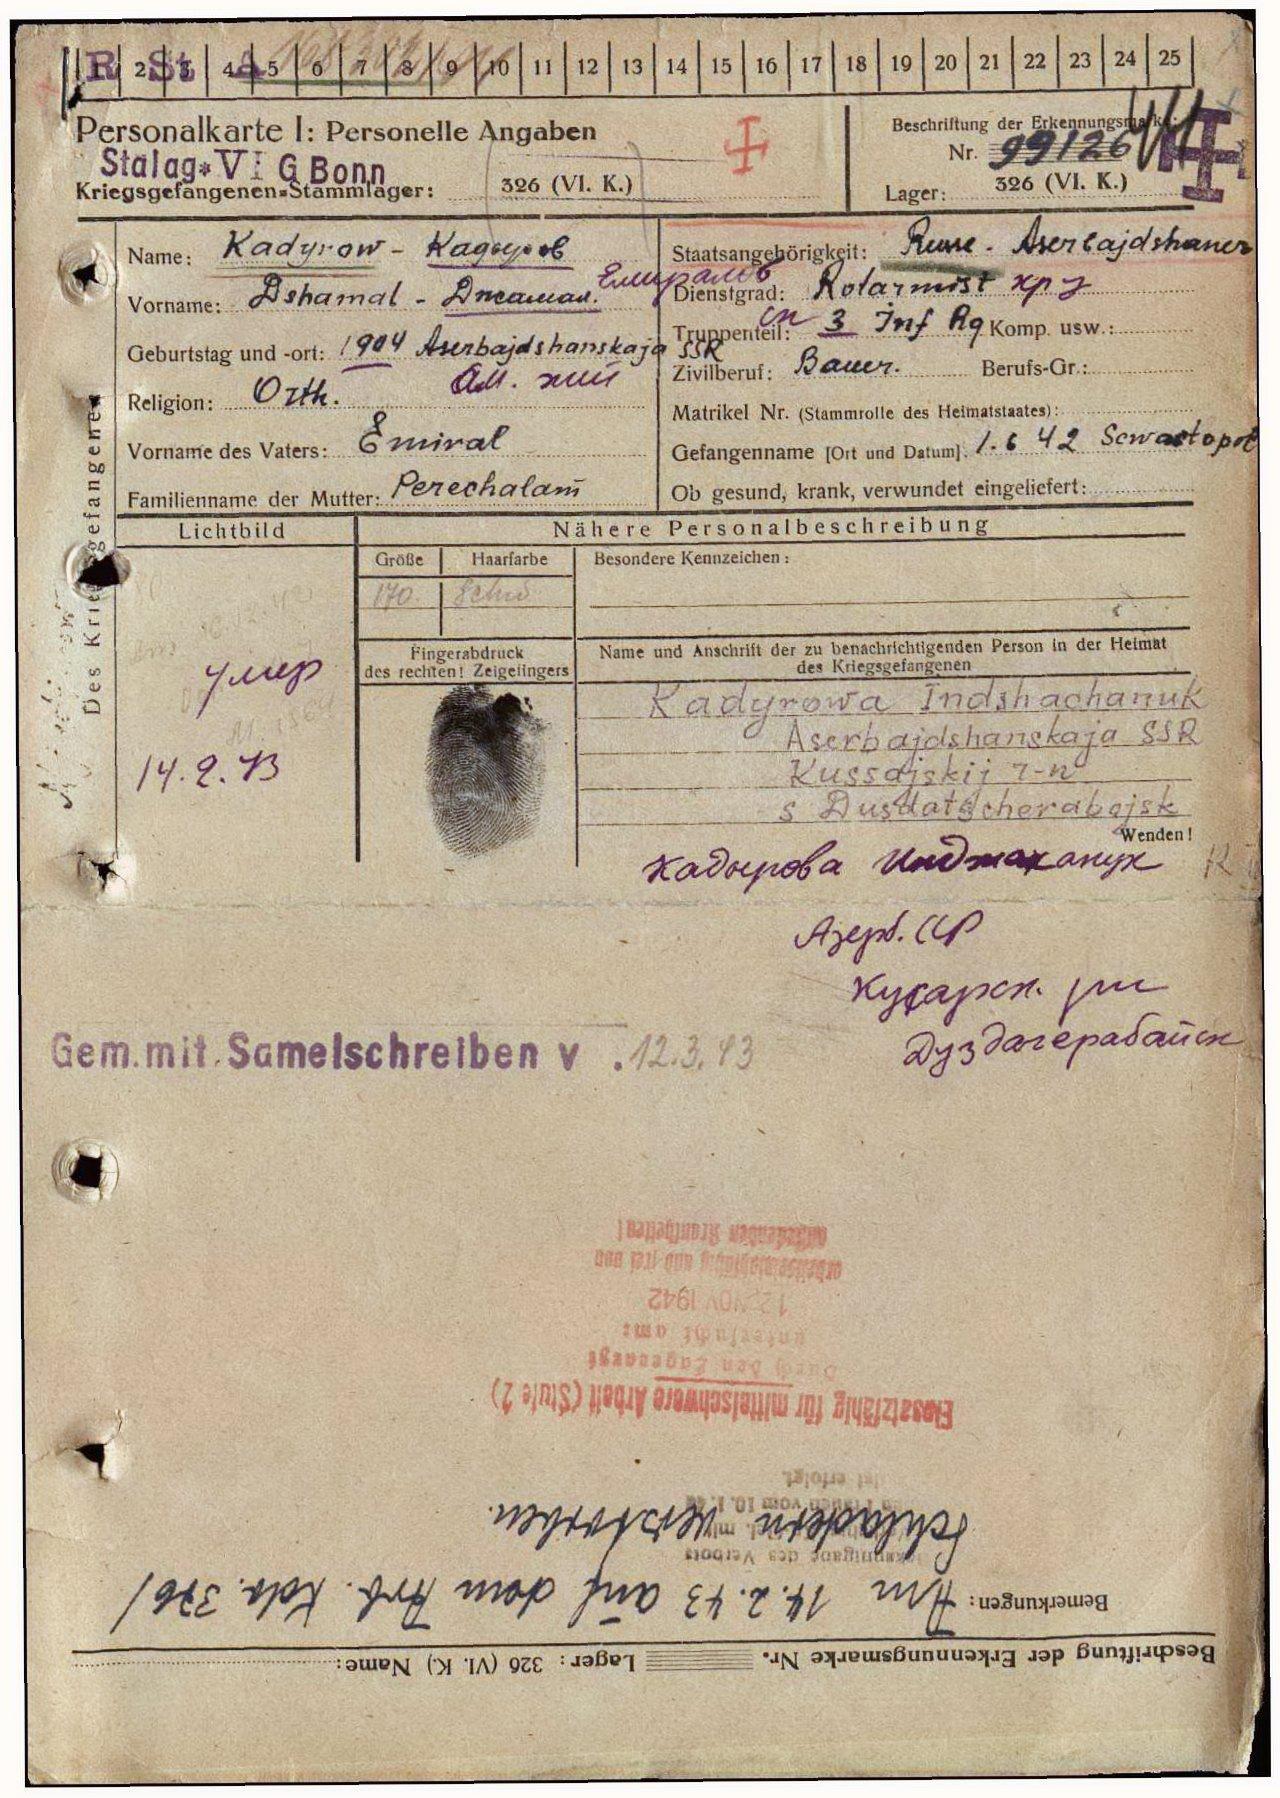 R St A
1 2 3 4 5 6 7 8 9 10 11 12 13 14 15 16 17 18 19 20 21 22 23 24 25
Personalkarte I: Personelle Angaben
Beschriftung der Erkennungsmarke:
Stalag VI G Bonn
Nr. 99126
Kriegsgefangenen-Stammlager: 326 (VI. K.)
Lager: 326 (VI. K.)
Des Kriegsgefangenen
Name: Kadyrow - Кадыров
Vorname: Dshamal - Джамал. Емиралов
Geburtstag und -ort: 1904 Aserbajdshanskaja SSR
Religion: Orth.
Vorname des Vaters: Emiral
Familienname der Mutter: Perechalam
Staatsangehörigkeit: Russe - Aserbajdshaner
Dienstgrad: Rotarmist кр-ц
Truppenteil: сп 3 Inf Rg Komp. usw.:
Zivilberuf: Bauer. Berufs-Gr.:
Matrikel Nr. (Stammrolle des Heimatstaates):
Gefangenname [Ort und Datum]: 1.6 42 Sewastopol
Ob gesund, krank, verwundet eingeliefert:
Lichtbild
Nähere Personalbeschreibung
Größe Haarfarbe Besondere Kennzeichen:
170 schw
умер
14.2.43
Fingerabdruck
des rechten! Zeigefingers
Name und Anschrift der zu benachrichtigenden Person in der Heimat
des Kriegsgefangenen
Kadyrowa Indshachanuk
Aserbajdshanskaja SSR
Kussajskij r-n
s Dusdatscherabajsk
Wenden!
Кадырова Инджаханук
Азерб. ССР
Кусарск. р-н
Дуздагерабайск
Gem. mit Samelschreiben v. 12.3.43
Beschriftung der Erkennungsmarke Nr. Lager: 326 (VI. K) Name:
Bemerkungen: Am 14.2.43 auf dem Arb. Kdo. 3761
Schladern verstorben.
Bekanntgabe des Verbots
vom 10.1.42
ist erfolgt.
Einsatzfähig für mittelschwere Arbeit (Stufe 2)
Durch den Lagerarzt
untersucht am:
12. NOV. 1942
arbeitseinsatzfähig und frei von
ansteckenden Krankheiten!